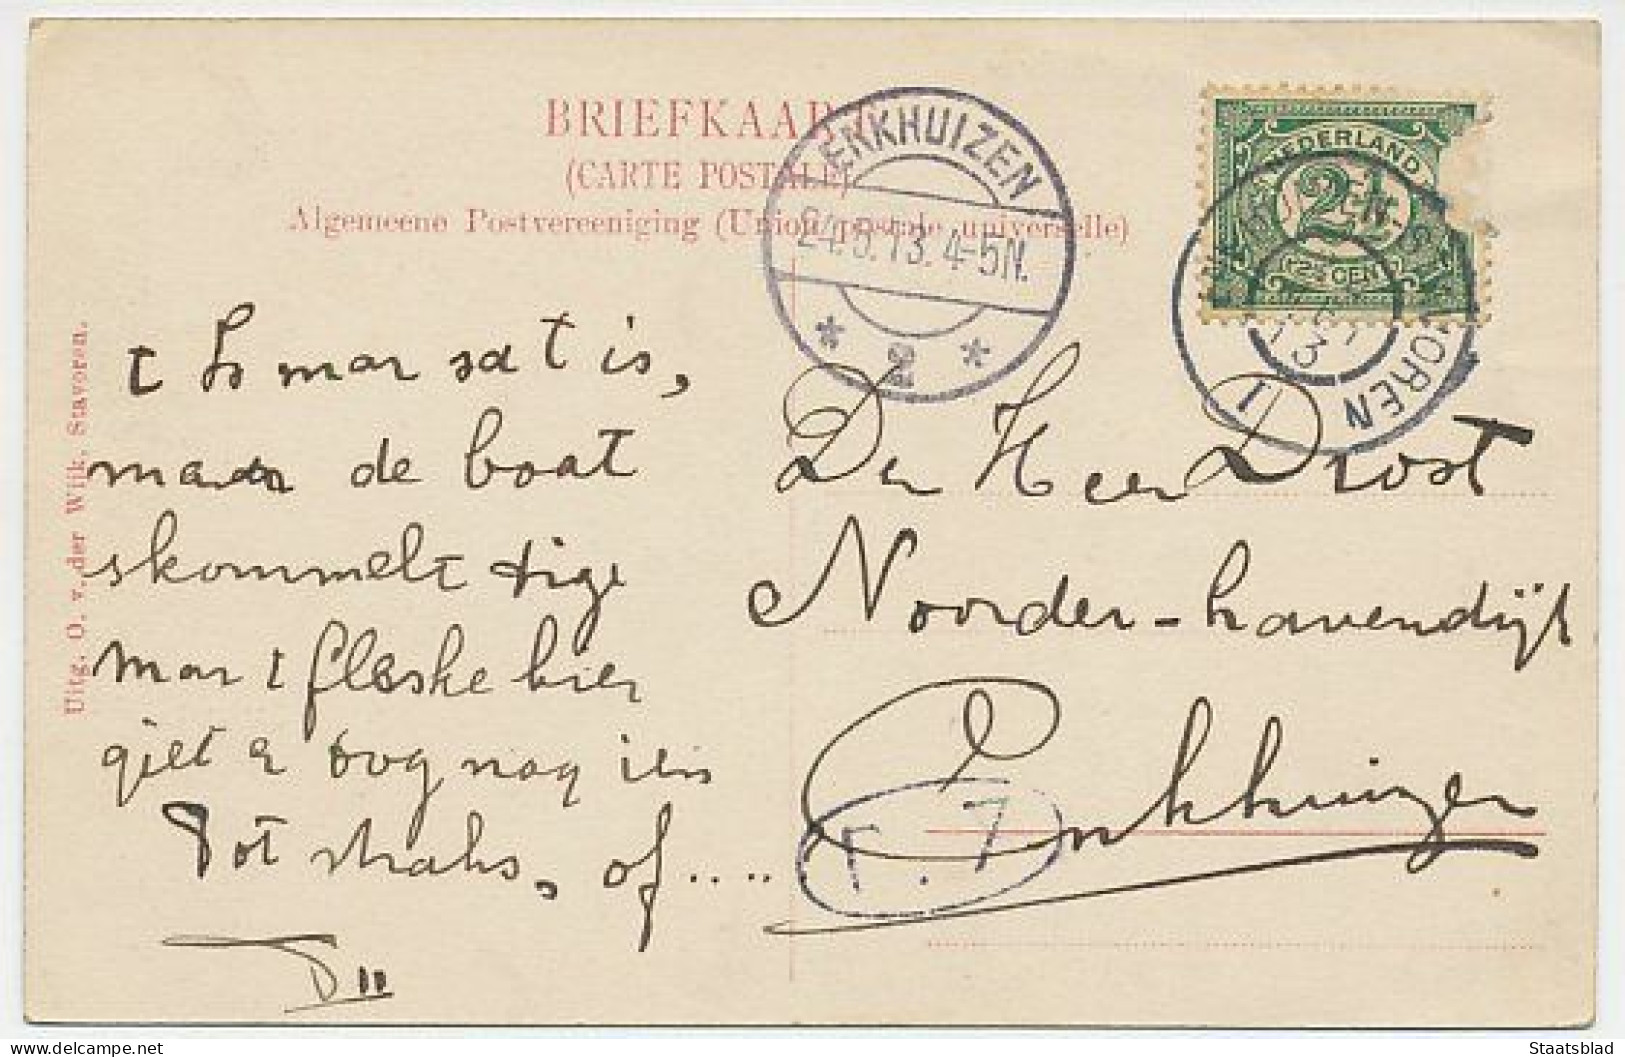 BRIEFKAART
(CARTE POSTALE)
Algemeene Postvereeniging (Union postale universelle)
ENKHUIZEN
24.5.13.4-5N.
2
NEDERLAND
2½
2½ CENT
VOREN
13
I
Uitg. O. v. der Wijk, Stavoren.
t Is mar sa t is,
maar de boat
skommelt tige
mar 1 fleske bier
giet er dog nog
Tot straks, of.....
De Heer Drost
Noorder-havendijk
Enkhuizen
7
Staatsblad